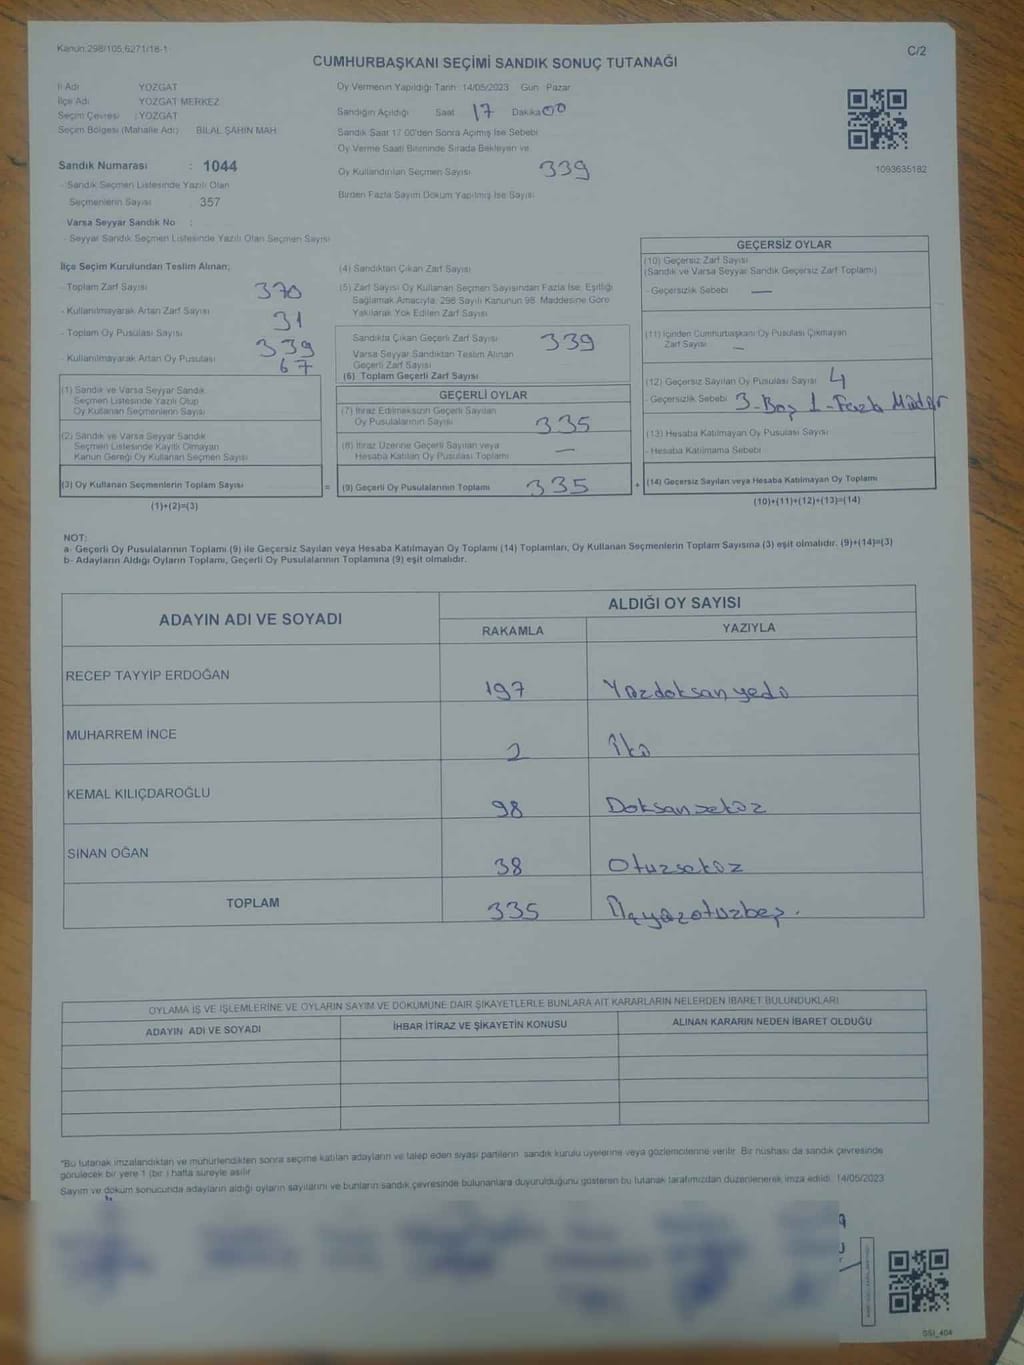 Kanun:298/105,6271/18-1
C/2
CUMHURBAŞKANI SEÇİMİ SANDIK SONUÇ TUTANAĞI
İl Adı YOZGAT
İlçe Adı YOZGAT MERKEZ
Seçim Çevresi : YOZGAT
Seçim Bölgesi (Mahalle Adı) BİLAL ŞAHİN MAH
Sandık Numarası : 1044
- Sandık Seçmen Listesinde Yazılı Olan
Seçmenlerin Sayısı : 357
Varsa Seyyar Sandık No :
- Seyyar Sandık Seçmen Listesinde Yazılı Olan Seçmen Sayısı
Oy Vermenin Yapıldığı Tarih: 14/05/2023 Gün: Pazar
Sandığın Açıldığı Saat 17 Dakika 00
Sandık Saat 17:00'den Sonra Açılmış İse Sebebi
Oy Verme Saati Bitiminde Sırada Bekleyen ve
Oy Kullandırılan Seçmen Sayısı 339
Birden Fazla Sayım Döküm Yapılmış İse Sayısı
1093635182
İlçe Seçim Kurulundan Teslim Alınan;
- Toplam Zarf Sayısı 370
- Kullanılmayarak Artan Zarf Sayısı 31
- Toplam Oy Pusulası Sayısı 339
- Kullanılmayarak Artan Oy Pusulası 67
(1) Sandık ve Varsa Seyyar Sandık
Seçmen Listesinde Yazılı Olup
Oy Kullanan Seçmenlerin Sayısı
(2) Sandık ve Varsa Seyyar Sandık
Seçmen Listesinde Kayıtlı Olmayan
Kanun Gereği Oy Kullanan Seçmen Sayısı
(3) Oy Kullanan Seçmenlerin Toplam Sayısı
(1)+(2)=(3)
=
(4) Sandıktan Çıkan Zarf Sayısı
(5) Zarf Sayısı Oy Kullanan Seçmen Sayısından Fazla İse, Eşitliği
Sağlamak Amacıyla, 298 Sayılı Kanunun 98. Maddesine Göre
Yakılarak Yok Edilen Zarf Sayısı
Sandıkta Çıkan Geçerli Zarf Sayısı 339
Varsa Seyyar Sandıktan Teslim Alınan
Geçerli Zarf Sayısı
(6) Toplam Geçerli Zarf Sayısı
GEÇERLİ OYLAR
(7) İtiraz Edilmeksizin Geçerli Sayılan
Oy Pusulalarının Sayısı 335
(8) İtiraz Üzerine Geçerli Sayılan veya
Hesaba Katılan Oy Pusulası Toplamı —
(9) Geçerli Oy Pusulalarının Toplamı 335
+
GEÇERSİZ OYLAR
(10) Geçersiz Zarf Sayısı
(Sandık ve Varsa Seyyar Sandık Geçersiz Zarf Toplamı)
- Geçersizlik Sebebi —
(11) İçinden Cumhurbaşkanı Oy Pusulası Çıkmayan
Zarf Sayısı —
(12) Geçersiz Sayılan Oy Pusulası Sayısı 4
- Geçersizlik Sebebi 3-Boş 1-Fazla Mühür
(13) Hesaba Katılmayan Oy Pusulası Sayısı
- Hesaba Katılmama Sebebi
(14) Geçersiz Sayılan veya Hesaba Katılmayan Oy Toplamı
(10)+(11)+(12)+(13)=(14)
NOT:
a- Geçerli Oy Pusulalarının Toplamı (9) ile Geçersiz Sayılan veya Hesaba Katılmayan Oy Toplamı (14) Toplamları, Oy Kullanan Seçmenlerin Toplam Sayısına (3) eşit olmalıdır. (9)+(14)=(3)
b- Adayların Aldığı Oyların Toplamı, Geçerli Oy Pusulalarının Toplamına (9) eşit olmalıdır.
ADAYIN ADI VE SOYADI ALDIĞI OY SAYISI
RAKAMLA YAZIYLA
RECEP TAYYİP ERDOĞAN 197 Yüzdoksanyedi
MUHARREM İNCE 2 İki
KEMAL KILIÇDAROĞLU 98 Doksansekiz
SİNAN OĞAN 38 Otuzsekiz
TOPLAM 335 Üçyüzotuzbeş.
OYLAMA İŞ VE İŞLEMLERİNE VE OYLARIN SAYIM VE DÖKÜMÜNE DAİR ŞİKAYETLERLE BUNLARA AİT KARARLARIN NELERDEN İBARET BULUNDUKLARI
ADAYIN ADI VE SOYADI İHBAR İTİRAZ VE ŞİKAYETİN KONUSU ALINAN KARARIN NEDEN İBARET OLDUĞU
"Bu tutanak imzalandıktan ve mühürlendikten sonra seçime katılan adayların ve talep eden siyasi partilerin sandık kurulu üyelerine veya gözlemcilerine verilir. Bir nüshası da sandık çevresinde
görülecek bir yere 1 (bir ) hafta süreyle asılır.
Sayım ve döküm sonucunda adayların aldığı oyların sayılarını ve bunların sandık çevresinde bulunanlara duyurulduğunu gösteren bu tutanak tarafımızdan düzenlenerek imza edildi. 14/05/2023
GSI_404